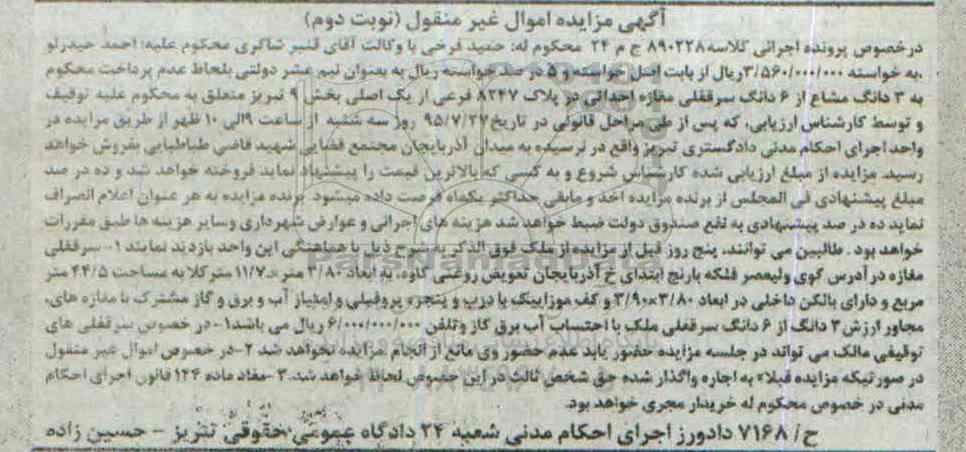 آگهی مزایده اموال غیر منقول (نوبت دوم)
درخصوص پرونده اجرائی کلاسه ۸۹۰۲۲۸ ج م ۲۴ محکوم له: حمید فرخی با وکالت آقای قنبر شاکری محکوم علیه: احمد حیدرلو
به خواسته ۳/۵۶۰/۰۰۰/۰۰۰ ریال از بابت اصل خواسته و ۵ در صد خواسته ریال به بعنوان نیم عشر دولتی بلحاظ عدم پرداخت محکوم
به ۳ دانگ مشاع از ۶ دانگ سرقفلی مغازه احداثی در پلاک ۸۲۴۷ فرعی از یک اصلی بخش ۹ تبریز متعلق به محکوم علیه توقیف
و توسط کارشناس ارزیابی، که پس از طی مراحل قانونی در تاریخ ۹۵/۷/۲۷ روز سه شنبه از ساعت ۹ الی ۱۰ ظهر از طریق مزایده در
واحد اجرای احکام مدنی دادگستری تبریز واقع در نرسیده به میدان آذربایجان مجتمع قضایی شهید قاضی طباطبایی بفروش خواهد
رسید. مزایده از مبلغ ارزیابی شده کارشناس شروع و به کسی که بالاترین قیمت را پیشنهاد نماید فروخته خواهد شد و ده در صد
مبلغ پیشنهادی فی المجلس از برنده مزایده اخذ و مابقی حداکثر یکماه فرصت داده میشود. برنده مزایده به هر عنوان اعلام انصراف
نماید ده در صد پیشنهادی به نفع صندوق دولت ضبط خواهد شد هزینه های اجرائی و عوارض شهرداری وسایر هزینه ها طبق مقررات
خواهد بود. طالبین می توانند، پنج روز قبل از مزایده از ملک فوق الذکر به شرح ذیل با هماهنگی این واحد بازدید نمایند ۱- سرقفلی
مغازه در آدرس کوی ولیعصر فلکه بارنج ابتدای خ آذربایجان تعویض روغنی کاوه، به ابعاد ۳/۸۰ متر × ۱۱/۷ متر کلا به مساحت ۴۴/۵ متر
مربع و دارای بالکن داخلی در ابعاد ۳/۸۰×۳/۹۰ و کف موزاییک با درب و پنجره پروفیلی و امتیاز آب و برق و گاز مشترک با مغازه های
مجاور ارزش ۳ دانگ از ۶ دانگ سرقفلی ملک با احتساب آب برق گاز وتلفن ۶/۰۰۰/۰۰۰/۰۰۰ ریال می باشد ۱- در خصوص سرقفلی های
توقیفی مالک می تواند در جلسه مزایده حضور یابد عدم حضور وی مانع از انجام مزایده نخواهد شد ۲- در خصوص اموال غیر منقول
در صورتیکه مزایده قبلا» به اجاره واگذار شده حق شخص ثالث در این خصوص لحاظ خواهد شد. ۳- مفاد ماده ۱۲۶ قانون اجرای احکام
مدنی در خصوص محکوم له خریدار مجری خواهد بود.
ح/ ۷۱۶۸ دادورز اجرای احکام مدنی شعبه ۲۴ دادگاه عمومی حقوقی تبریز - حسین زاده